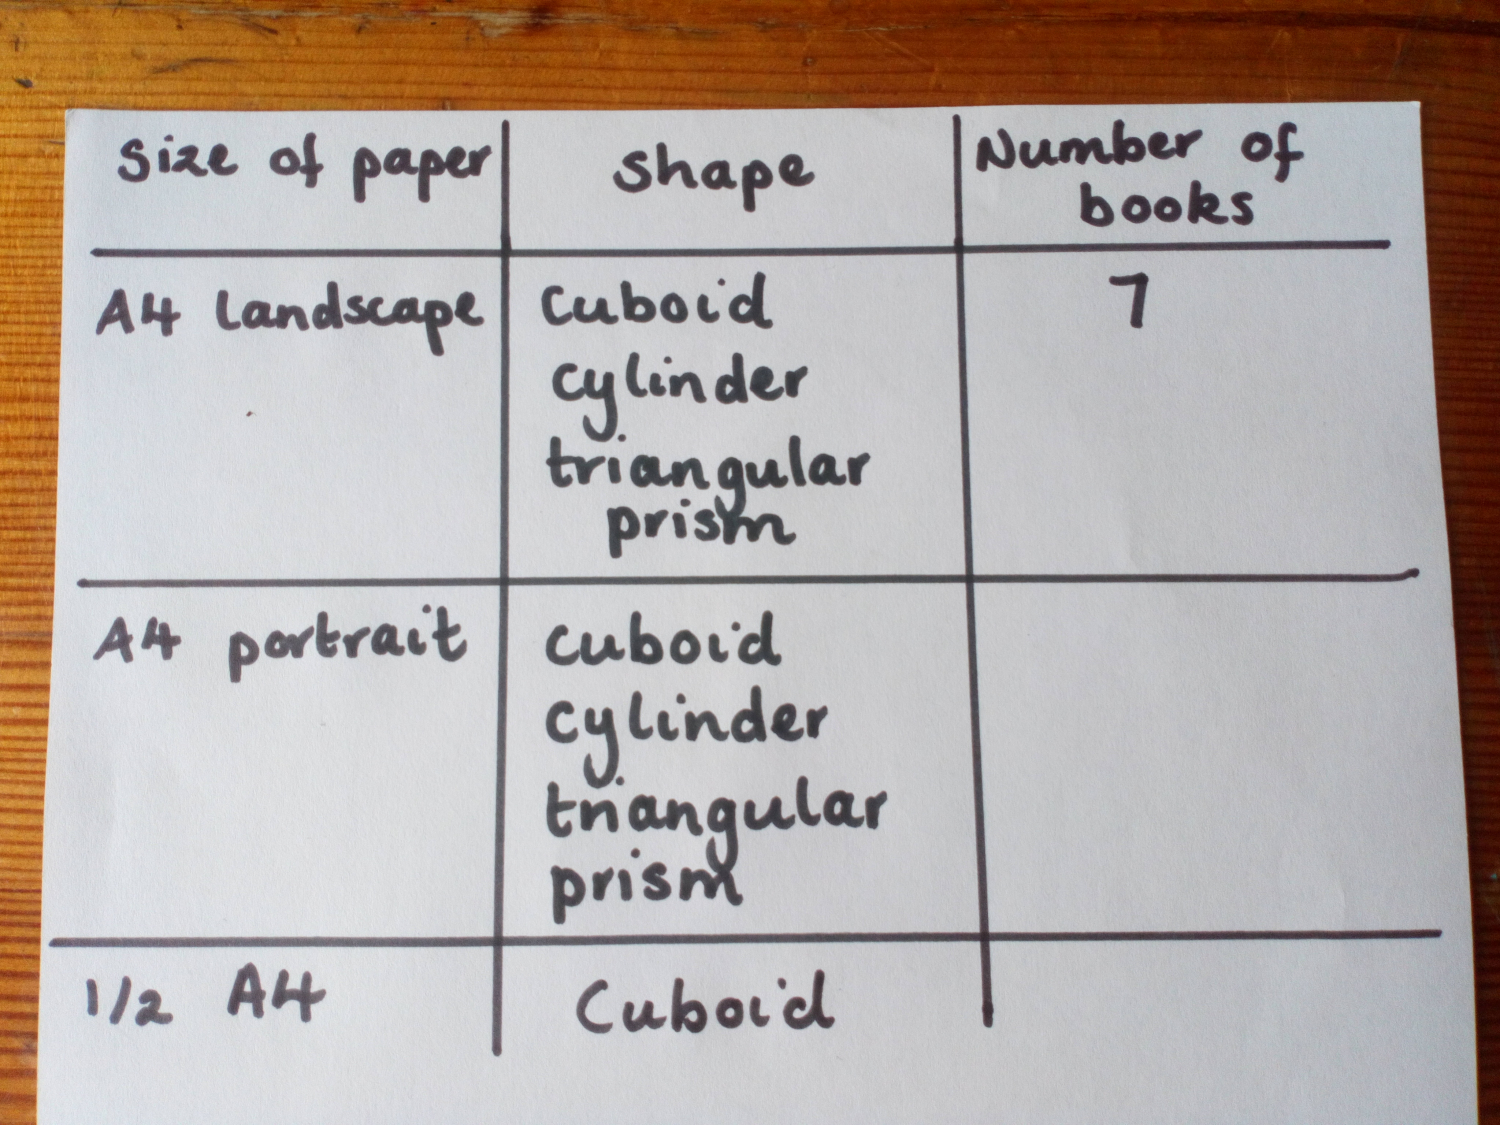 Size of paper
shape
Number of
books
A4 landscape
cuboid
7
cylinder
triangular
prism
A4 portrait
cuboid
cylinder
triangular
prism
1/2 A4
Cuboid